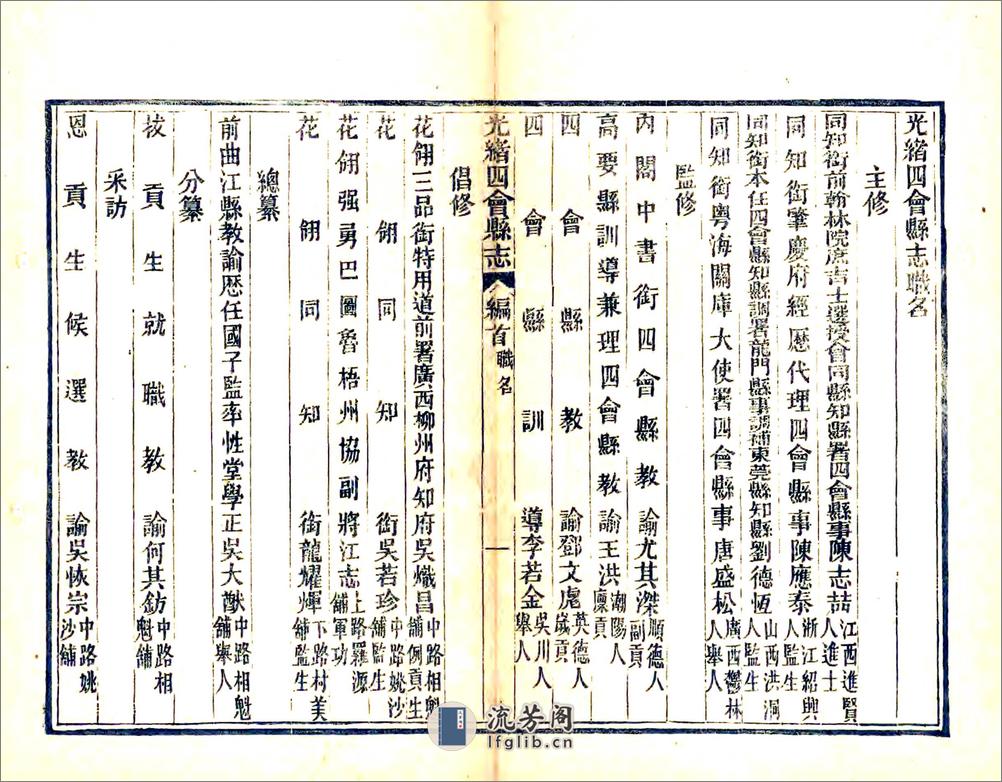 光緒四會縣志職名
主修
同知銜前翰林院庶吉士選授會同縣知縣署四會縣事陳志喆江西進賢人進士
同知銜肇慶府經歷代理四會縣事陳應泰浙江紹興人監生
同知銜本任四會縣知縣調署龍門縣事調補東莞縣知縣劉德恆山西洪洞人監生
同知銜粵海關庫大使署四會縣事唐盛松廣西鬱林人舉人
監修
內閣中書銜四會縣教諭尤其深順德人副貢
高要縣訓導兼理四會縣教諭王洪潮陽人廩貢
四會縣教諭鄧文虎英德人歲貢
四會縣訓導李若金吳川人舉人
光緒四會縣志 編首 職名 一
倡修
花翎三品銜特用道前署廣西柳州府知府吳熾昌中路相魁舖例貢生
花翎同知銜吳若珍中路姚沙舖監生
花翎强勇巴圖魯梧州協副將江志上路羅源舖軍功
花翎同知銜龍耀墀下路村美舖監生
總纂
前曲江縣教諭歷任國子監率性堂學正吳大猷中路相魁舖舉人
分纂
拔貢生就職教諭何其鈁中路相魁舖
采訪
恩貢生候選教諭吳恢宗中路姚沙舖
流芳阁
lfglib.cn